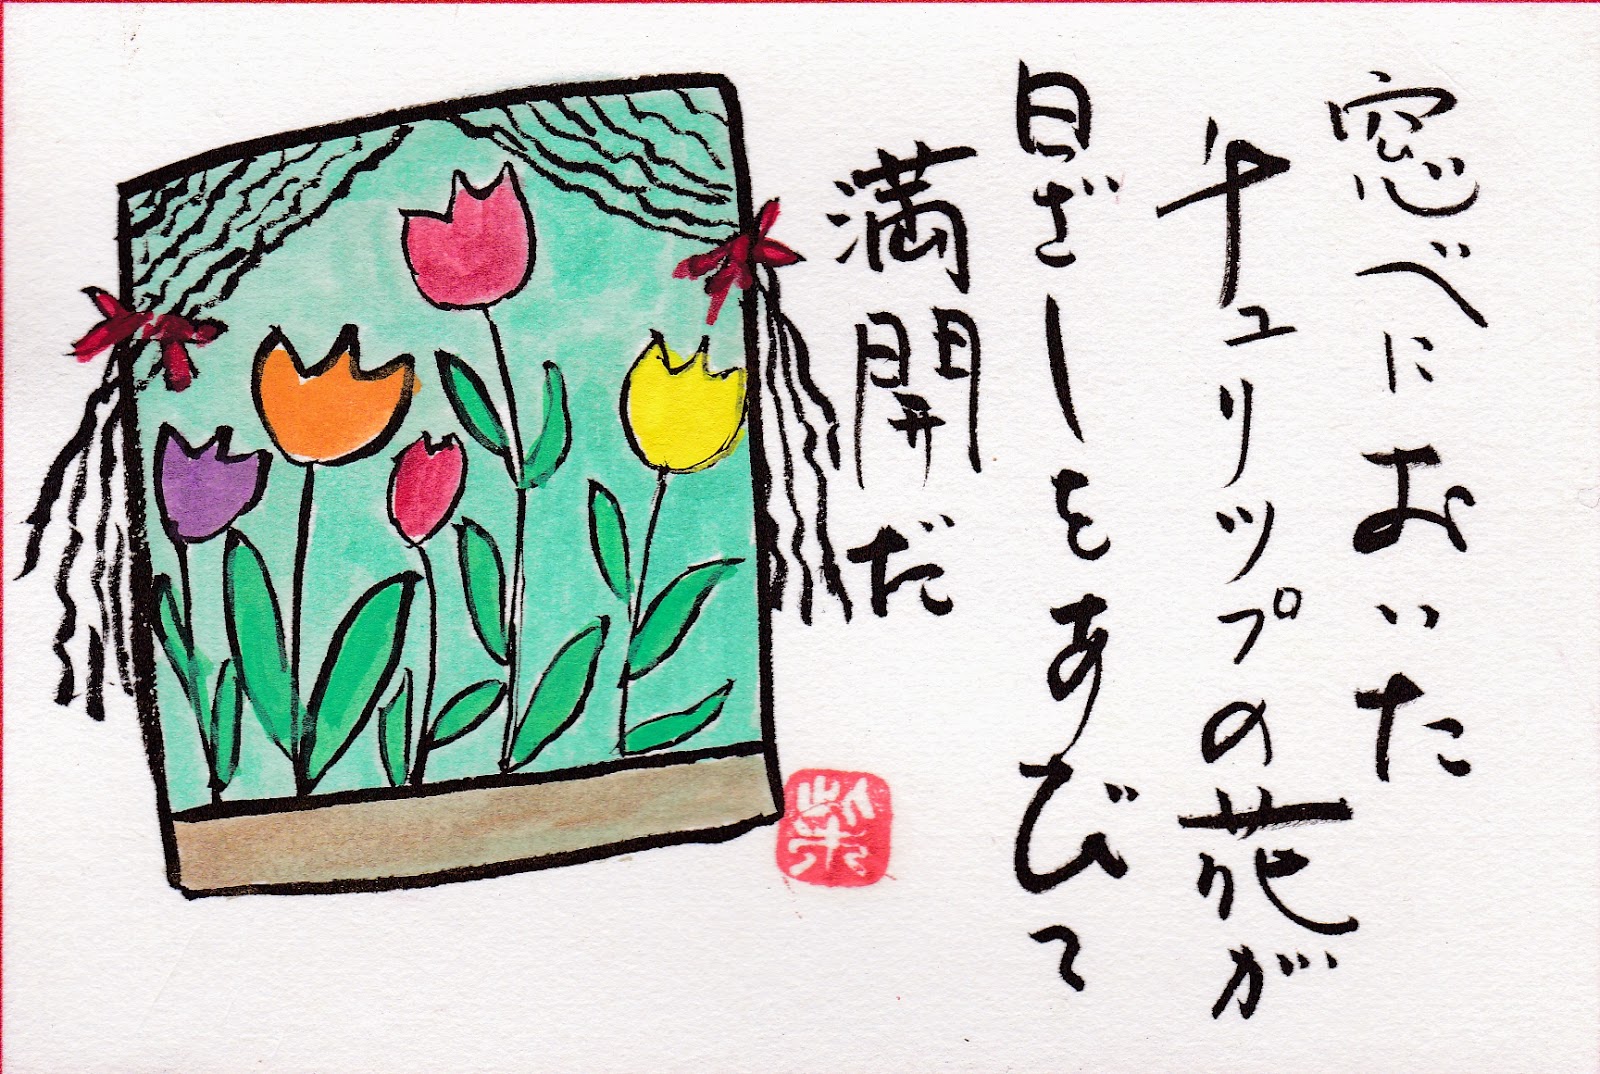 窓べにおいた
チュリップの花が
日ざしをあびて
満開だ
柴